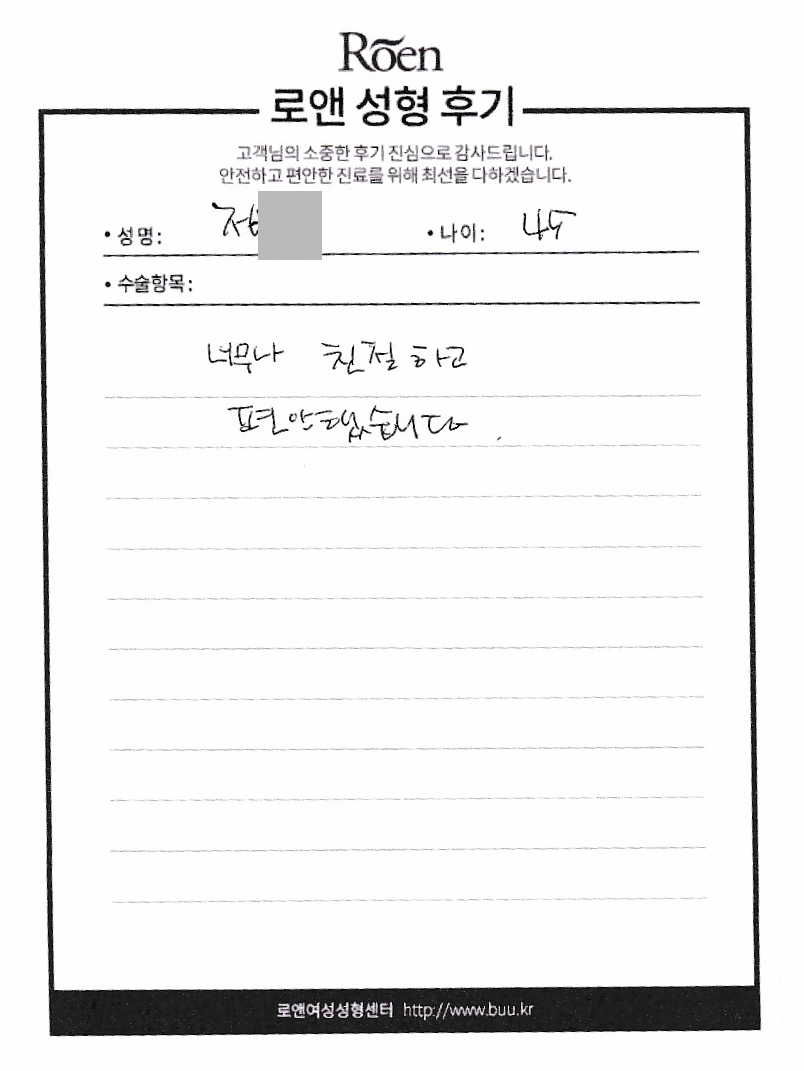 Rõen
로앤 성형 후기
고객님의 소중한 후기 진심으로 감사드립니다.
안전하고 편안한 진료를 위해 최선을 다하겠습니다.
• 성명: • 나이: 45
• 수술항목:
너무나 친절하고
편안했습니다.
로앤여성성형센터 http://www.buu.kr